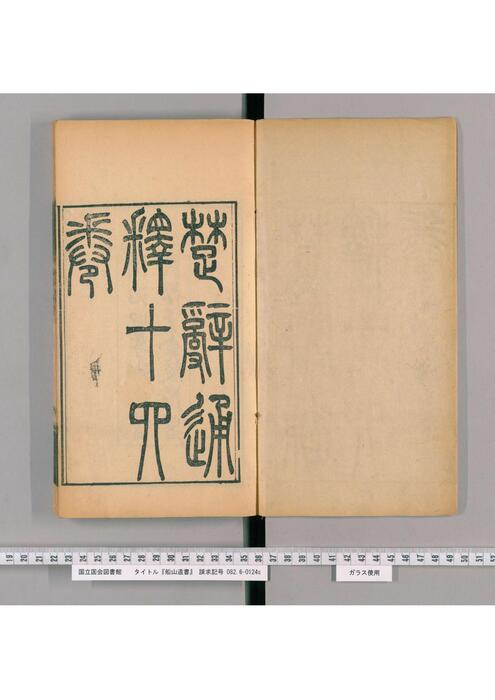 楚辭通
釋十四
卷
19 20 21 22 23 24 25 26 27 28 29 30 31 32 33 34 35 36 38 39 40 41 42 43 44 45 46 47 48 49 50 51 52
国立国会図書館 タイトル『船山遺書』 請求記号 082.6-0124s
ガラス使用